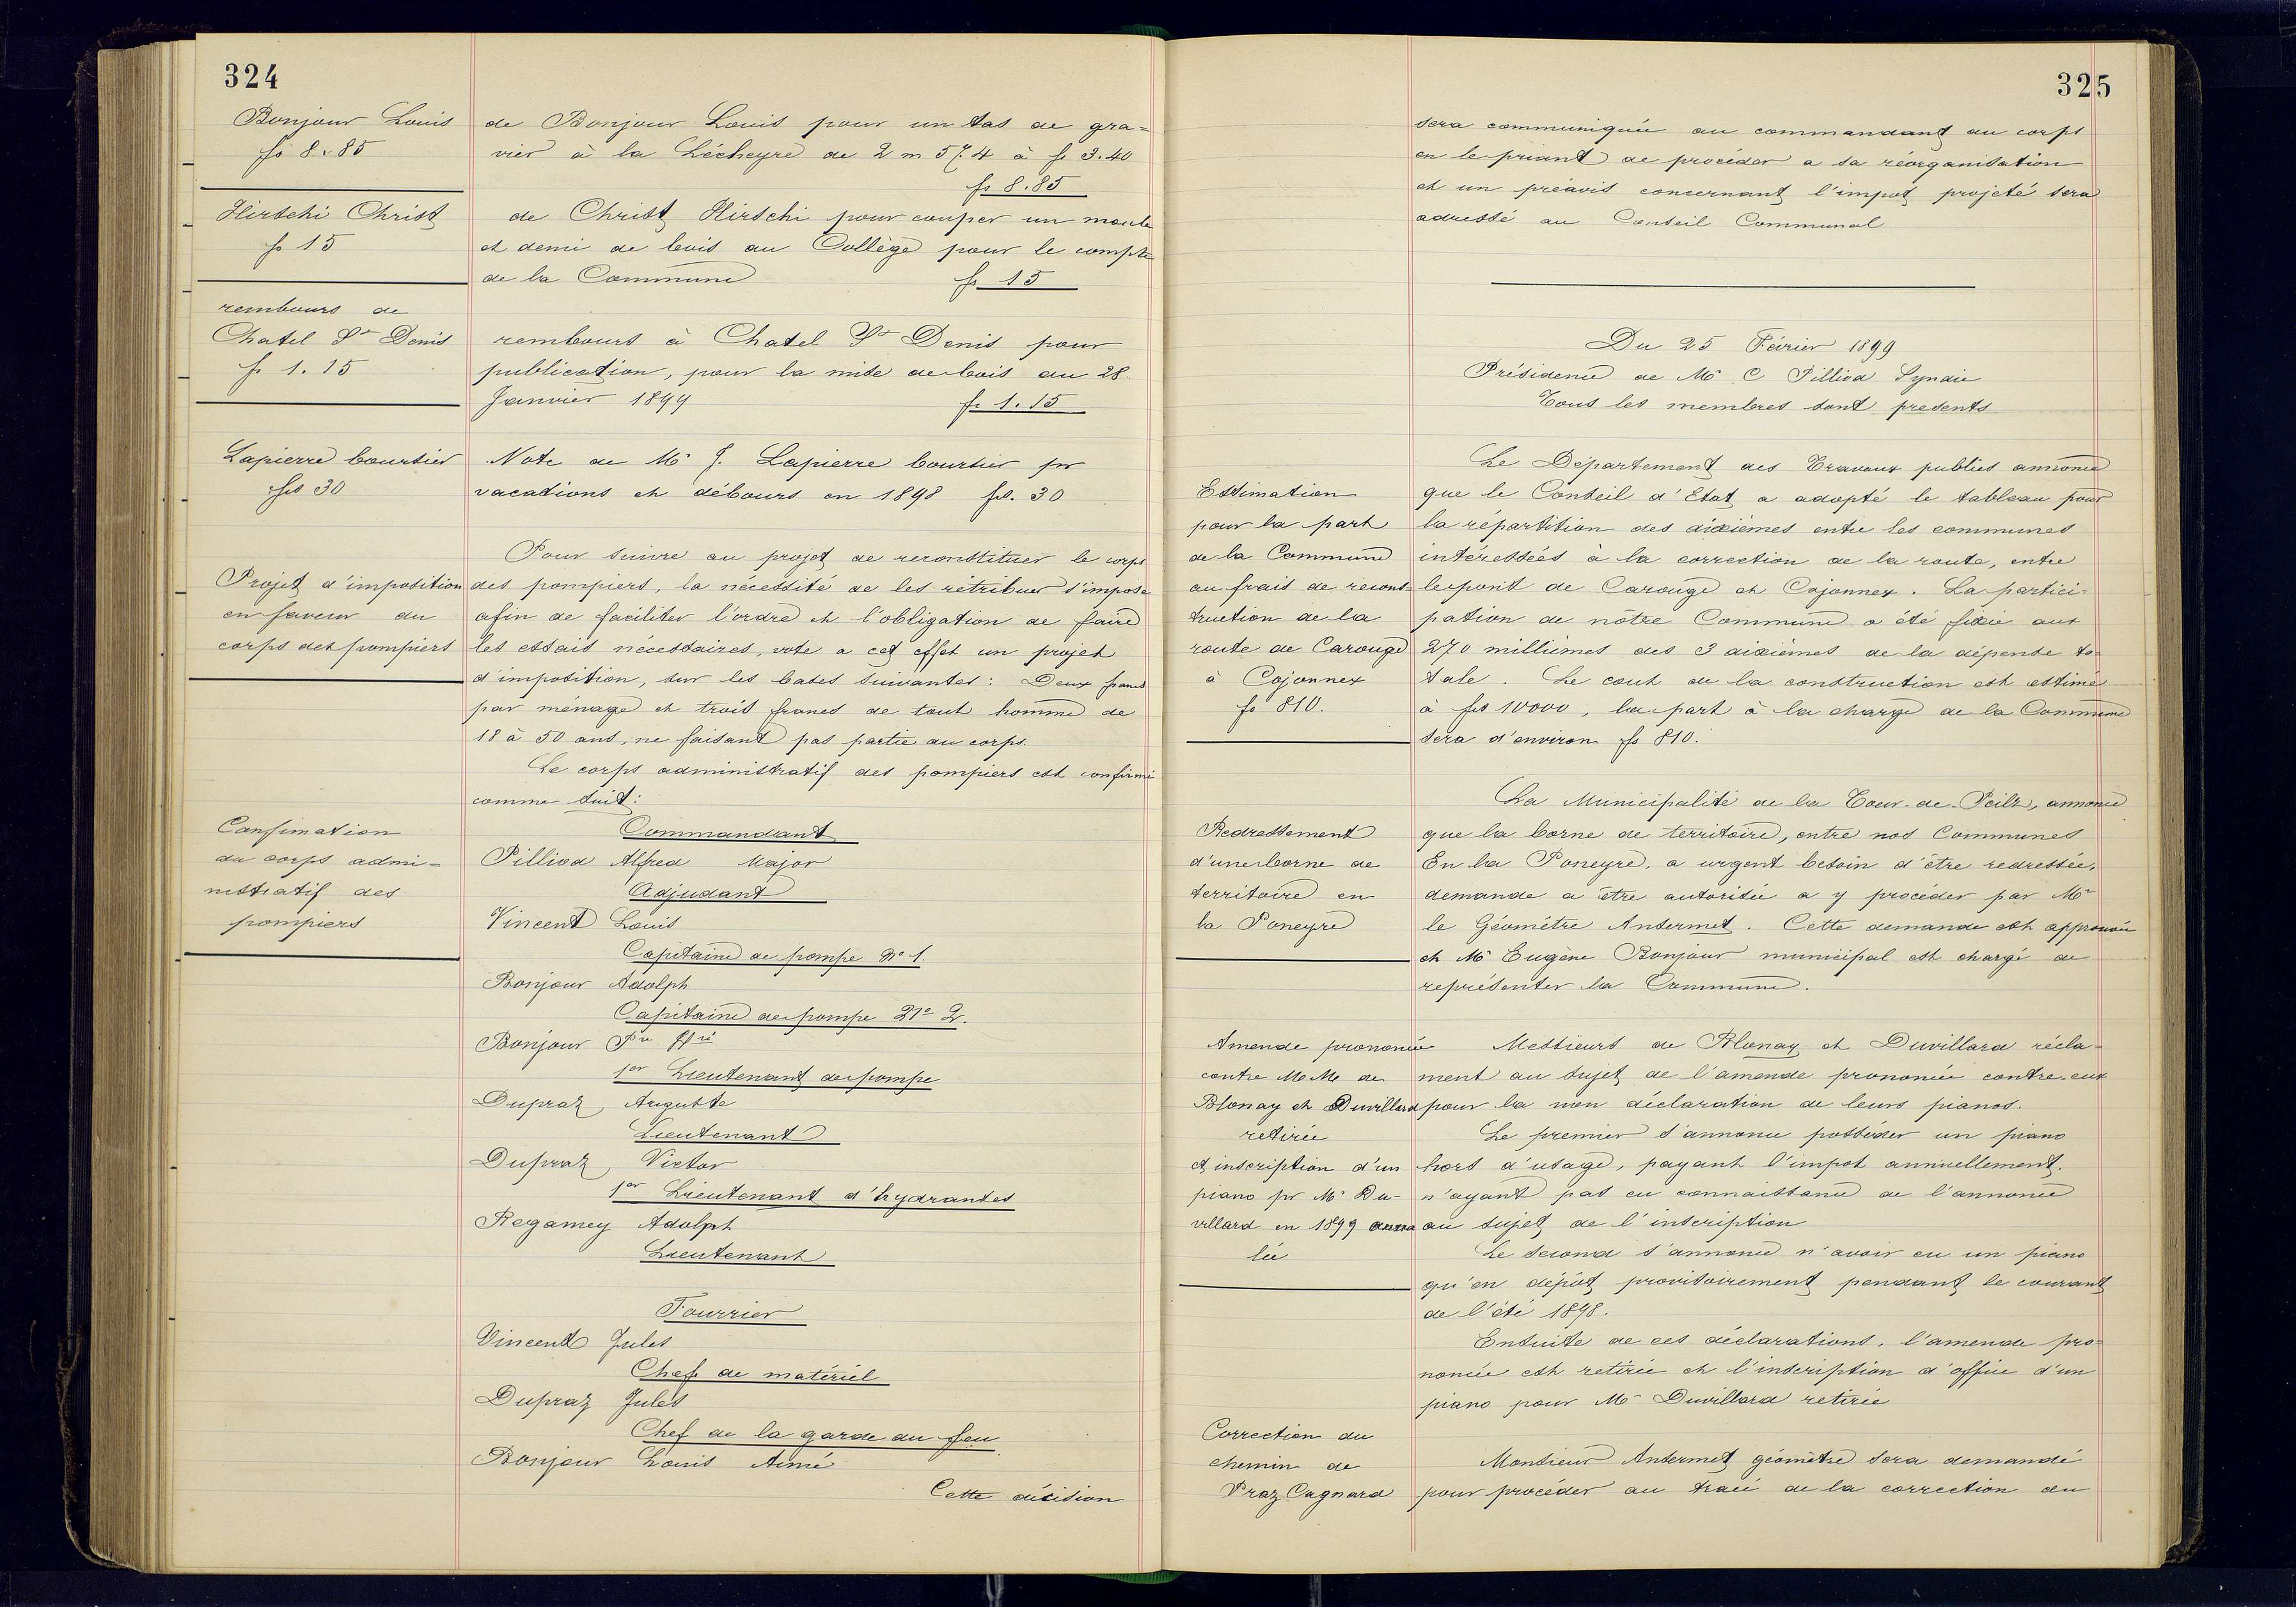 324
Bonjour Louis
fs 8.85
de Bonjour Louis pour un tas de gra=
vier à la Lécheyre de 2 m 57.4 à fr 3.40
fs 8.85
Hirschi Christ
fs 15
de Christ Hirschi pour couper un moule
et demi de bois au Collège pour le compte
de la Commune fs 15
rembours de
Chatel St Denis
fr 1.15
rembours à Chatel St Denis pour
publication, pour la mise de bois du 28
Janvier 1899 fr 1.15
Lapierre boursier
frs 30
Note de Mr J. Lapierre boursier pr
vacations et débours en 1898 fs. 30
Projet d'imposition
en faveur du
corps des pompiers
Pour suivre au projet de reconstituer le corps
des pompiers, la nécessité de les rétribuer s'impose
afin de faciliter l'ordre et l'obligation de faire
les essais nécessaires, vote a cet effet un projet
d'imposition, sur les bases suivantes: Deux francs
par ménage et trois francs de tout homme de
18 à 50 ans, ne faisant pas partie au corps.
Le corps administratif des pompiers est confirmé
comme suit:
Confimation
du corps admi=
nistratif des
pompiers
Commandant
Pilliod Alfred Major
Adjudant
Vincent Louis
Capitaine de pompe No 1.
Bonjour Adolph
Capitaine de pompe No 2.
Bonjour Pre ffeu
1er Lieutenant de pompe
Dupraz, Auguste
Lieutenant
Dupraz, Victor
1er Lieutenant d'hydrantes
Regamey Adolph
Lieutenant
Fourrier
Vincent Jules
Chef de matériel
Dupraz Jules
Chef de la garde du feu
Bonjour Louis Aimé
Cette décision
325
sera communiquée au commandant du corps
en le priant de procéder a sa réorganisation
et un préavis concernant l'impot projeté sera
adressé au Conseil Communal
Du 25 Février 1899
Présidence de Mr C Pilliod Syndic
Tous les membres sont presents
Estimation
pour la part
de la Commune
au frais de recons=
truction de la
route de Carouge
à Cojonnex
fs 810.
Le Département des Travaux publics annonce
que le Conseil d'Etat a adopté le tableau pour
la répartition des dixièmes entre les communes
intéressées à la correction de la route, entre
le pont de Carouge et Cojonnex. La partici=
pation de nôtre Commune a été fixée aux
270 millièmes des 3 dixièmes de la dépense to=
tale. Le cout de la construction est estimé
à frs 10000, la part à la charge de la Commune
sera d'environ fs 810.
Redressement
d'une borne de
territoire en
la Poneyre
La Municipalité de la Tour-de-Peilz, annonce
que la borne de territoire, entre nos Communes
En la Poneyre, a urgent besoin d'être redressée,
demande a être autorisée a y procéder par Mr
le Géomètre Ansermet. Cette demande est approuvée
et Mr Eugène Bonjour municipal est chargé de
représenter la Commune.
Amende prononcée
contre M M de
Blonay et Duvillard
retirée
et inscription d'un
piano pr Mr Du-
villard en 1899 annu
lée
Messieurs de Blonay et Duvillard récla=
ment au sujet de l'amende prononcée contre-eux
pour la non déclaration de leurs pianos.
Le premier s'annonce posséder un piano
hors d'usage, payant l'impot annuellement.
n'ayant pas eu connaissance de l'annonce
au sujet de l'inscription
Le second s'annonce n'avoir eu un piano
qu'en dépôt provisoirement pendant le courant
de l'été 1898.
Ensuite de ces déclarations, l'amende pro=
noncée est retirée et l'inscription d'office d'un
piano pour Mr Duvillard retirée
Correction du
chemin de
Praz Cagnard
Monsieur Ansermet géomètre sera demandé
pour procéder au tracé de la correction du